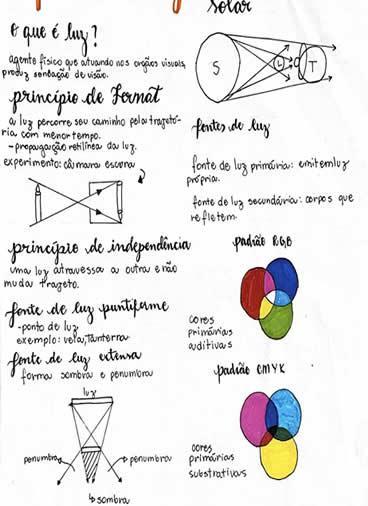 Solar
O que é luz?
agente físico que atuando nos orgãos visuais,
produz sensação de visão.
princípio de Fermat
a luz percorre seu caminho pela trajetó-
ria com menor tempo.
- propagação retilínea da luz.
experimento: câmara escura
princípio de independência
uma luz atravessa a outra e não
muda trajeto.
fonte de luz puntiforme
- ponto de luz
exemplo: vela, lanterna
fonte de luz extensa
forma sombra e penumbra
luz
penumbra
penumbra
sombra
S
L
T
fontes de luz
fonte de luz primária: emitem luz
própria.
fonte de luz secundária: corpos que
refletem.
padrão RGB
cores
primárias
aditivas
padrão CMYK
cores
primárias
substrativas